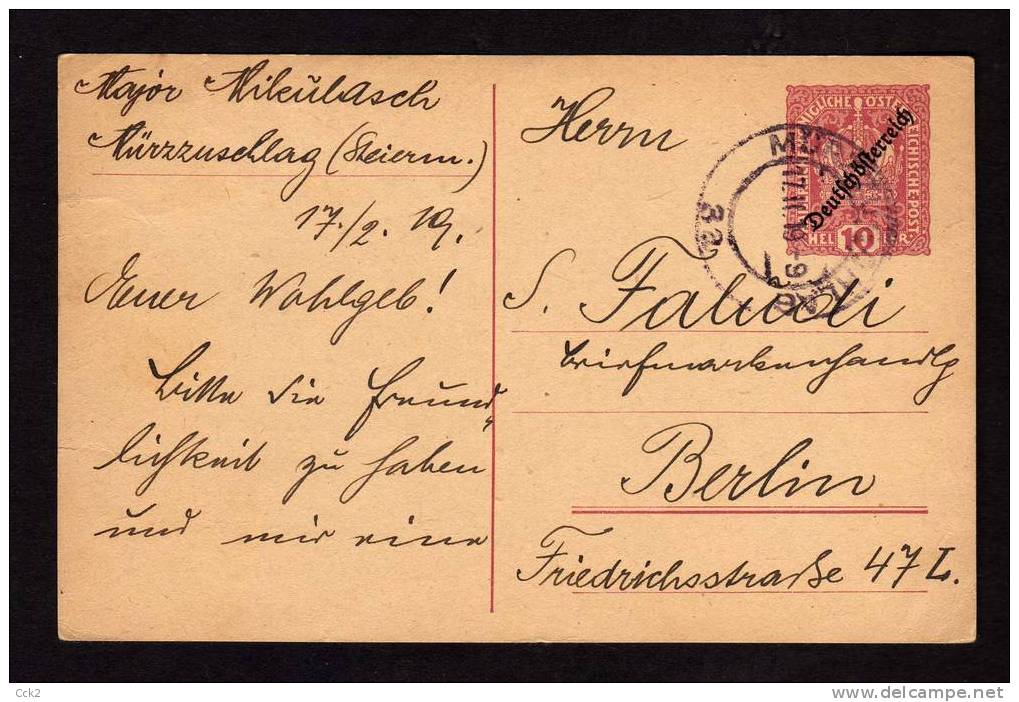 Major Mikulasch
Mürzzuschlag (Steierm.)
17./2. 19.
Euer Wohlgeb!
Bitte die Freund„
lichkeit zu haben
und mir eine
Herrn
S. Faludi
Briefmarkenhandlg
Berlin
Friedrichsstraße 47 I.
NIGLICHE ÖSTERREICHISCHE POST
Deutschösterreich
HEL 10 R.
17.II.19-9
3a
Cck2
delcampe.net